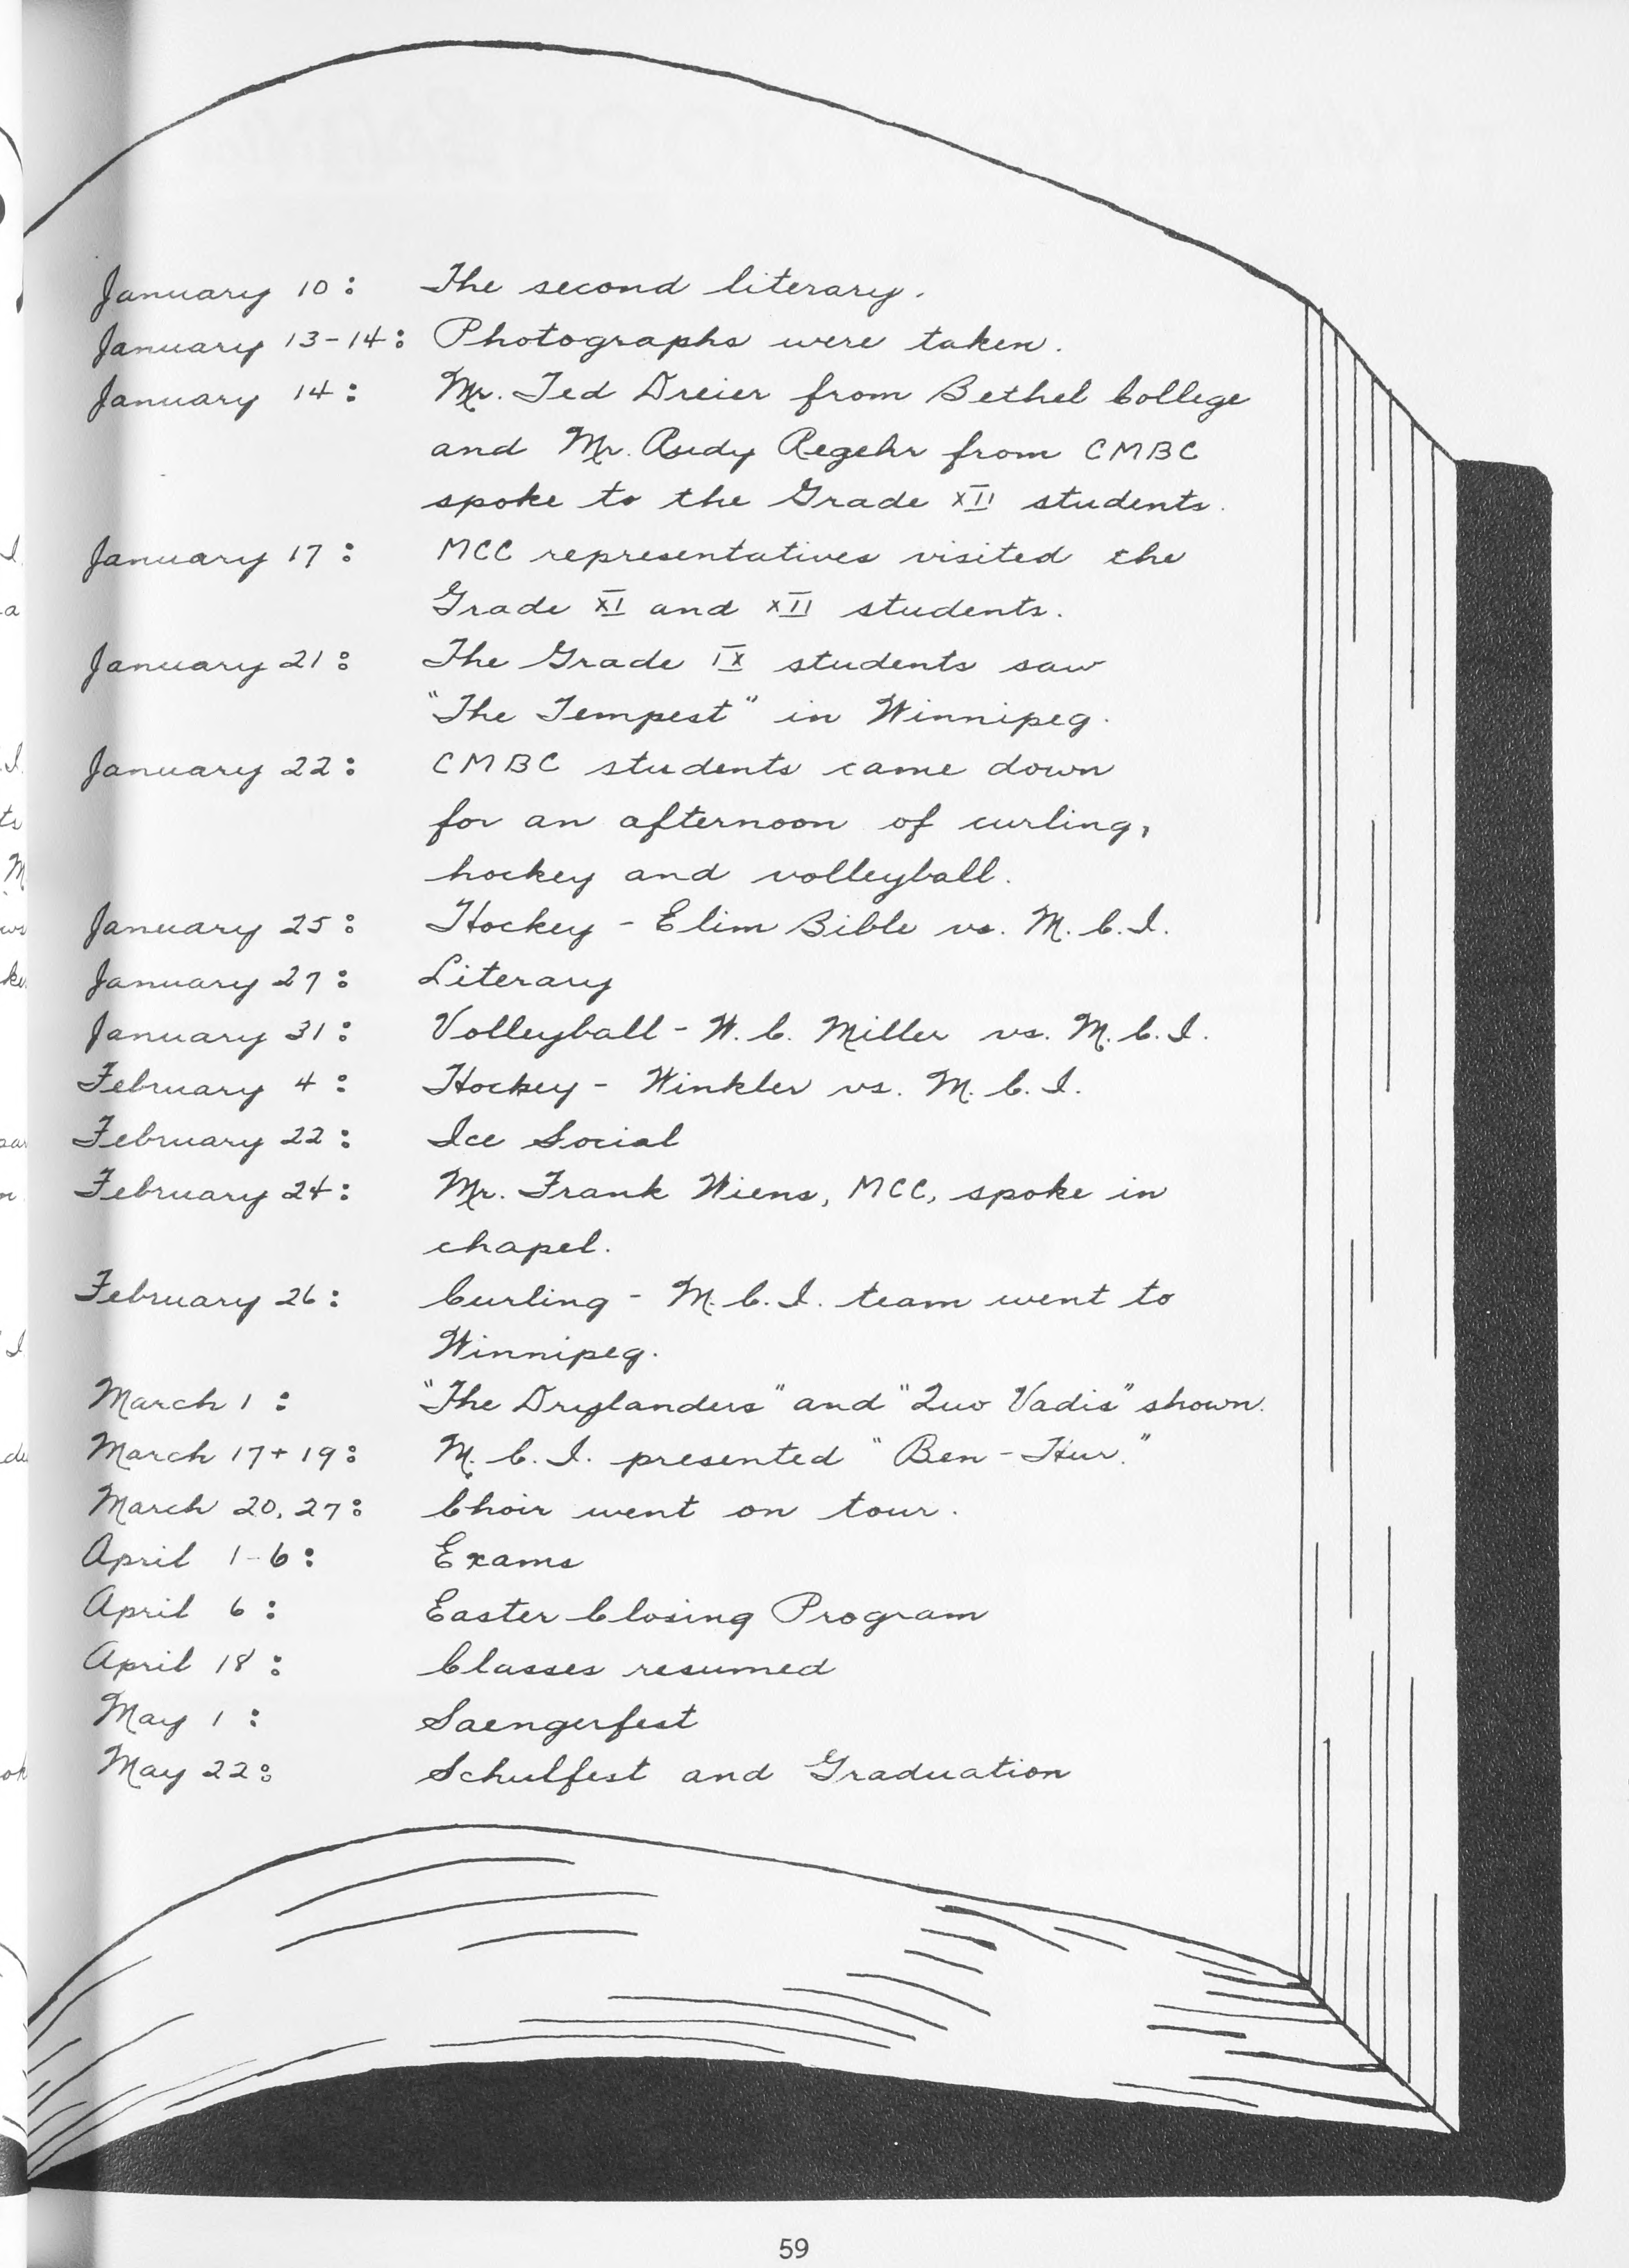 January 10: The second literary.
January 13-14: Photographs were taken.
January 14: Mr. Ted Dreier from Bethel College
and Mr. Rudy Regehr from CMBC
spoke to the Grade XII students.
January 17: MCC representatives visited the
Grade XI and XII students.
January 21: The Grade IX students saw
"The Tempest" in Winnipeg.
January 22: CMBC students came down
for an afternoon of curling,
hockey and volleyball.
January 25: Hockey - Elim Bible vs. M.C.I.
January 27: Literary
January 31: Volleyball - W.C. Miller vs. M.C.I.
February 4: Hockey - Winkler vs. M.C.I.
February 22: Ice Social
February 24: Mr. Frank Wiens, MCC, spoke in
chapel.
February 26: Curling - M.C.I. team went to
Winnipeg.
March 1: "The Drylanders" and "Quo Vadis" shown.
March 17 + 19: M.C.I. presented "Ben-Hur."
March 20, 27: Choir went on tour.
April 1-6: Exams
April 6: Easter Closing Program
April 18: Classes resumed
May 1: Saengerfest
May 22: Schulfest and Graduation
59